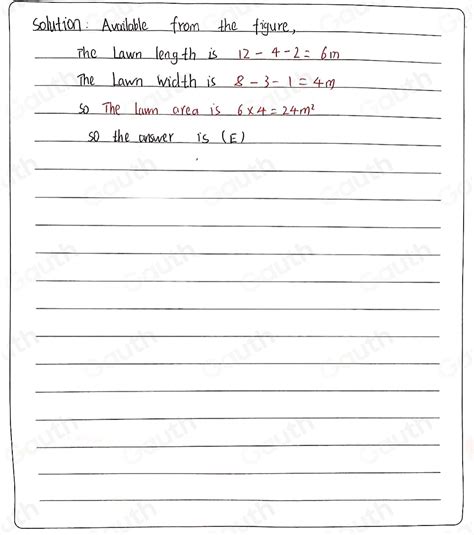 Solution: Available from the figure,
The Lawn length is 12 - 4 - 2 = 6m
The Lawn width is 8 - 3 - 1 = 4m
so The lawn area is 6 × 4 = 24m²
so the answer is (E)
Gauth